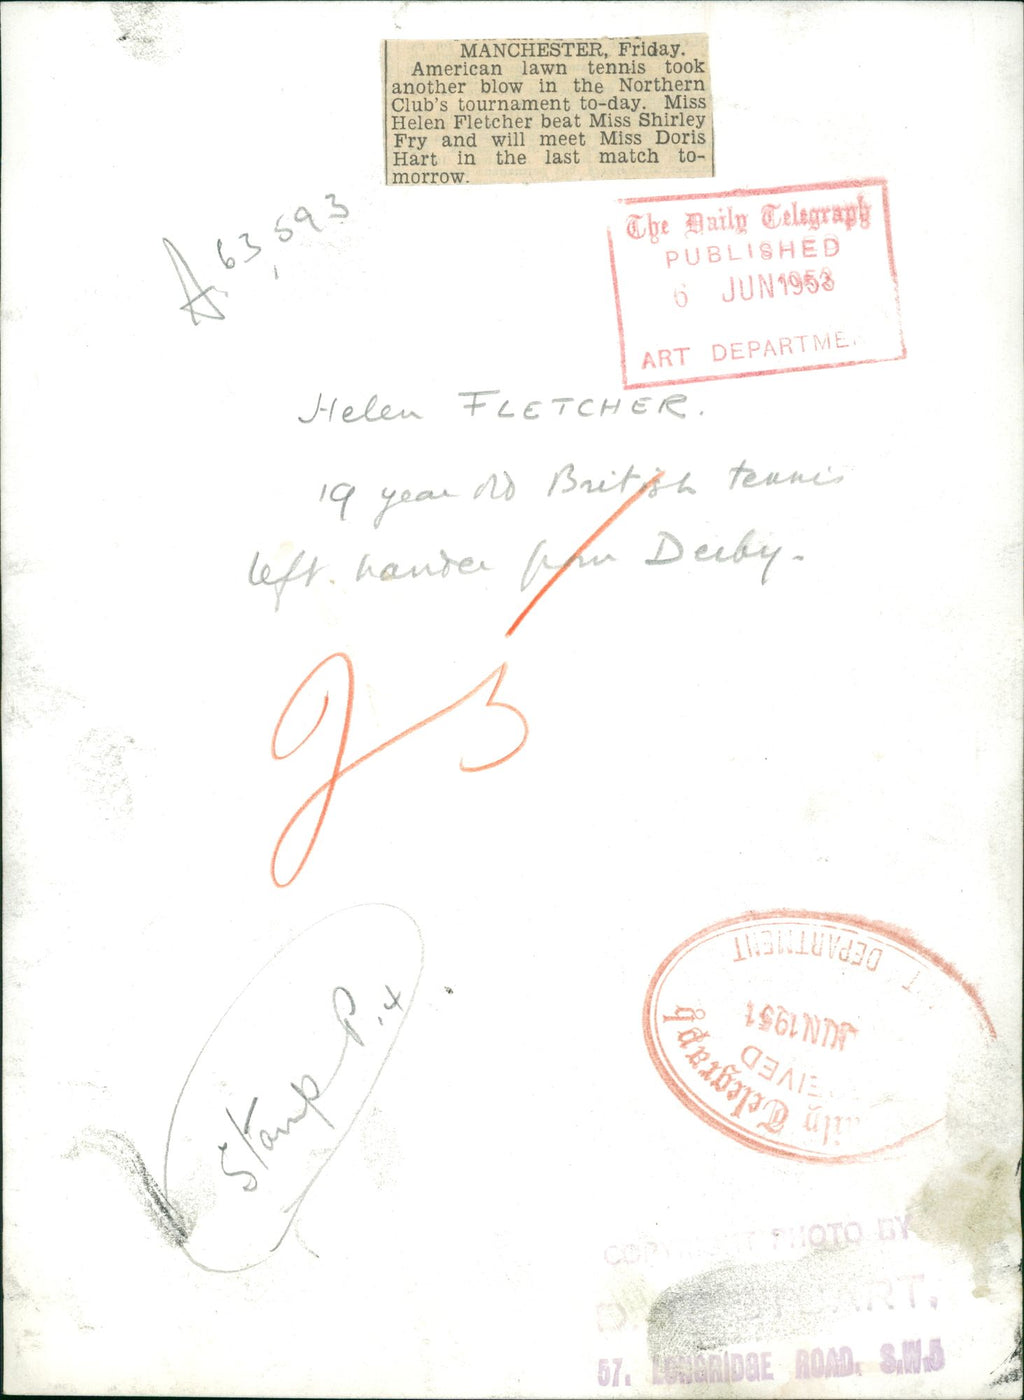 MANCHESTER, Friday.
American lawn tennis took
another blow in the Northern
Club's tournament to-day. Miss
Helen Fletcher beat Miss Shirley
Fry and will meet Miss Doris
Hart in the last match to-
morrow.
A. 63,593
The Daily Telegraph
PUBLISHED
6 JUN 1953
ART DEPARTME
Helen FLETCHER.
19 year old British tennis
left. hander from Derby.
Stamp P.4
DEPARTMENT
JUN 1951
EIVED
aily Telegraph
PHOTO BY
57. LONGRIDGE ROAD. S.W.5